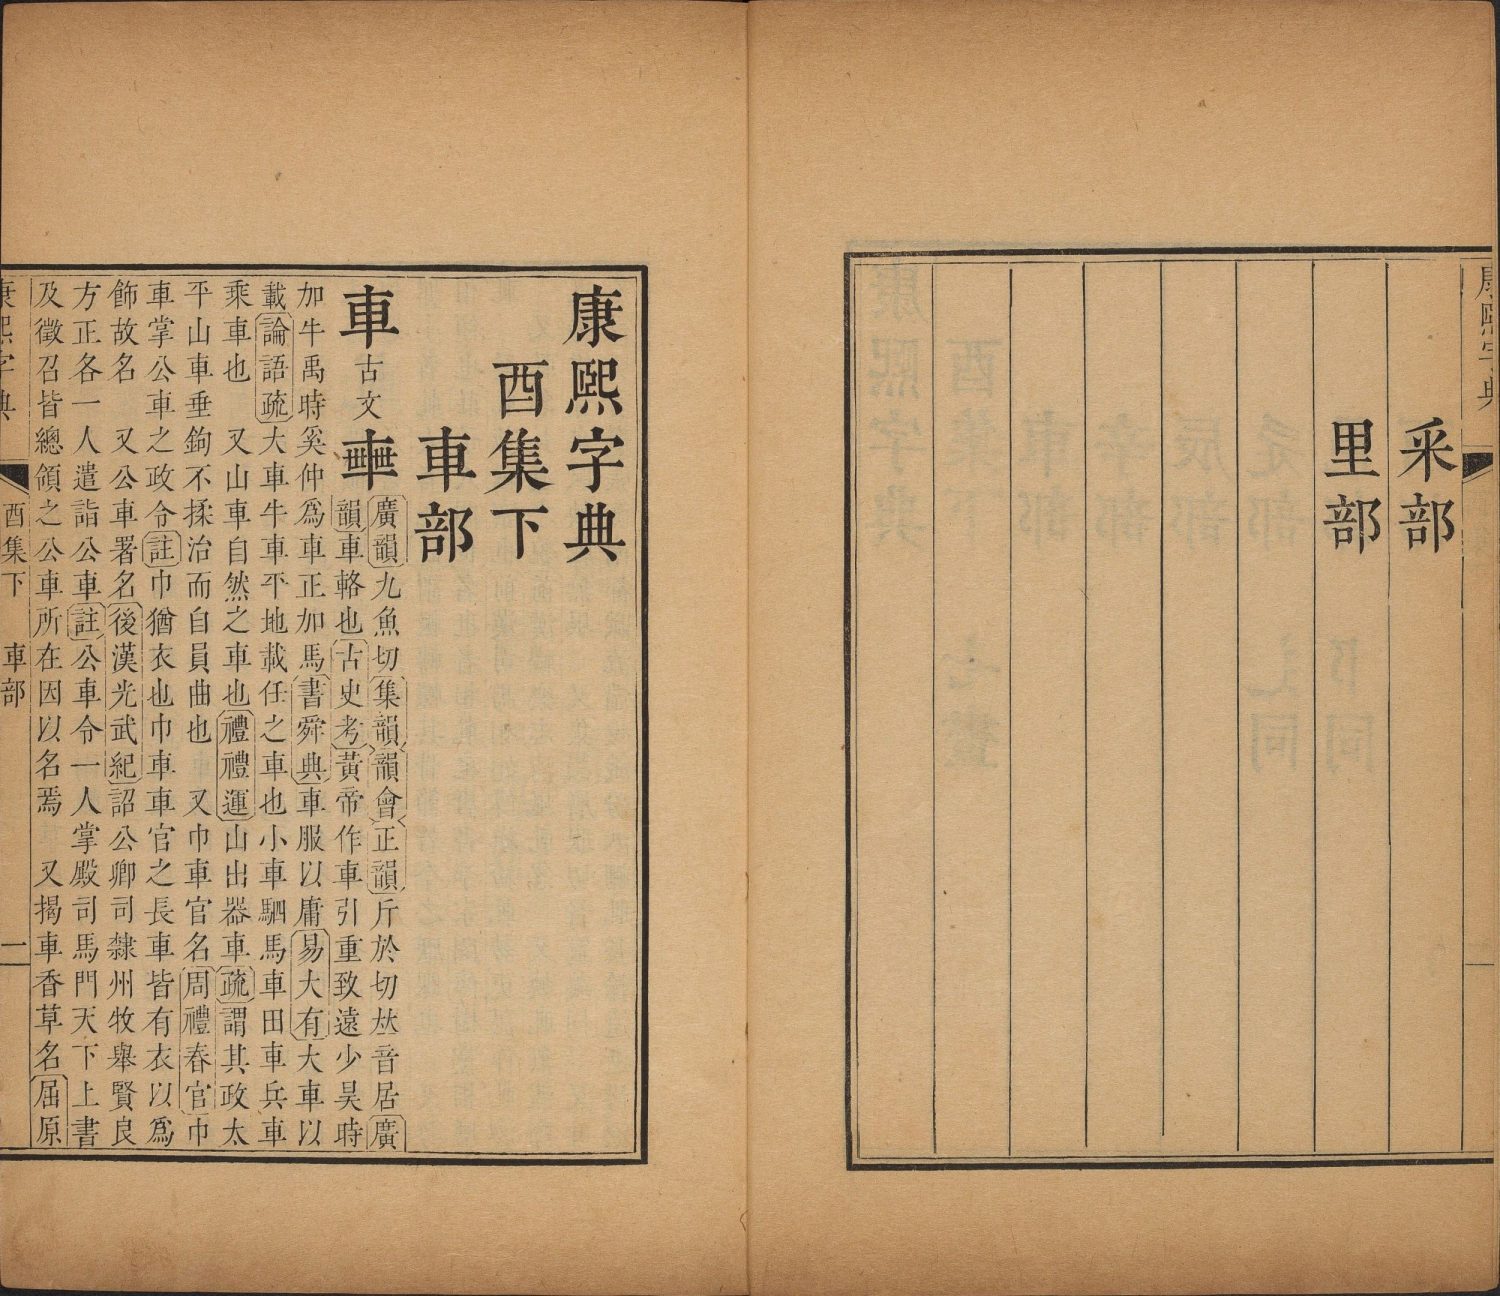 康熙字典
釆部
里部
康熙字典
酉集下
車部
車 古文 𨏖
廣韻九魚切集韻韻會正韻斤於切𠀤音居廣
韻車輅也古史考黃帝作車引重致遠少昊時
加牛禹時奚仲爲車正加馬書舜典車服以庸易大有大車以
載論語疏大車牛車平地載任之車也小車駟馬車田車兵車
乘車也 又山車自然之車也禮禮運山出器車疏謂其政太
平山車垂鉤不揉治而自員曲也 又巾車官名周禮春官巾
車掌公車之政令註巾猶衣也巾車車官之長車皆有衣以爲
飾故名 又公車署名後漢光武紀詔公卿司隸州牧舉賢良
方正各一人遣詣公車註公車令一人掌殿司馬門天下上書
及徵召皆總領之公車所在因以名焉 又揭車香草名屈原
康熙字典 酉集下 車部 一